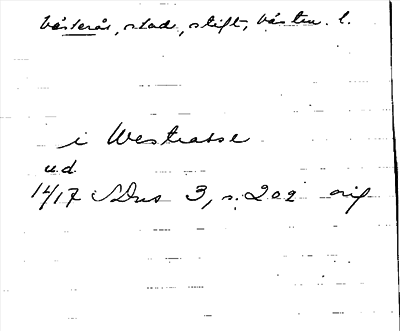 Västerås, stad, stift, Västm. l.
i Westraasse
u.d.
14/17 SDns 3, s. 202 orig